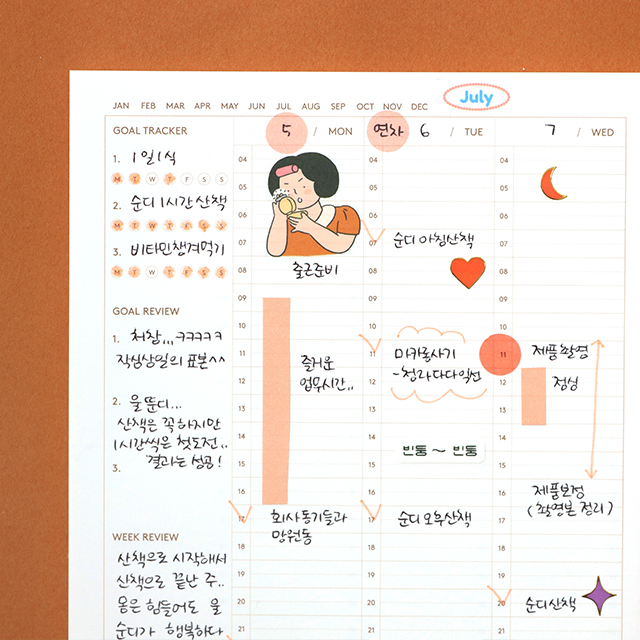 JAN FEB MAR APR MAY JUN JUL AUG SEP OCT NOV DEC July
GOAL TRACKER
1. 1일1식
M T W T F S S
2. 순디 1시간 산책
M T W T F S S
3. 비타민챙겨먹기
M T W T F S S
GOAL REVIEW
1. 처참,,, ㅋㅋㅋㅋㅋ
작심삼일의 표본^^
2. 울뚠디...
산책은 꼭 하지만
1시간씩은 첫도전..
3. 결과는 성공!
WEEK REVIEW
산책으로 시작해서
산책으로 끝난 주..
몸은 힘들어도 울
순디가 행복하다
5 / MON
04
05
06
07
08 출근준비
09
10
11 즐거운
12 업무시간..
13
14
15
16
17 회사동기들과
망원동
18
19
20
21
연차 6 / TUE
04
05
06
07 순디 아침산책
08
09
10
11 마카롱사기
12 -청라다다일선
13
14 빈둥 ~ 빈둥
15
16
17 순디 오후산책
18
19
20
21
7 / WED
04
05
06
07
08
09
10
11 제품촬영
12 점심
13
14
15
16 제품보정
(촬영본 정리)
17
18
19
20 순디산책
21